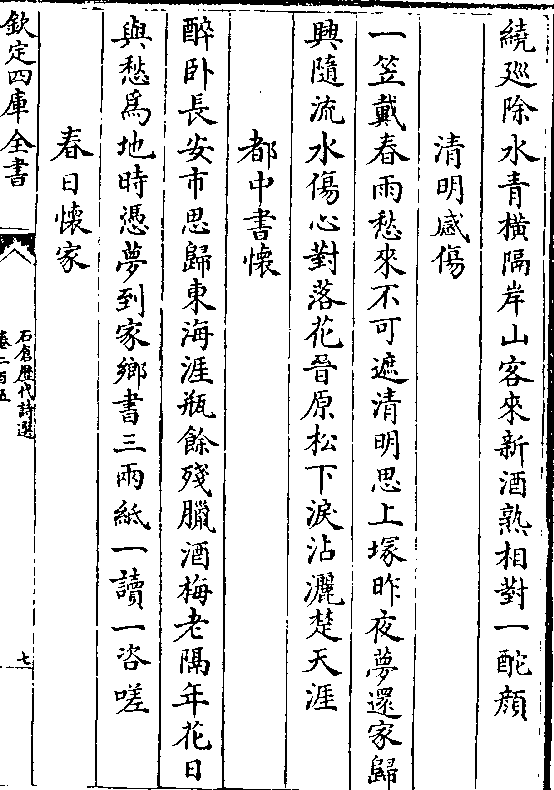 繞廵除水青橫隔岸山客來新酒熟相對一酡顔
清明感傷
一笠戴春雨愁來不可遮清明思上塚昨夜夢還家歸
興隨流水傷心對落花晉原松下淚沾灑楚天涯
都中書懷
醉卧長安市思歸東海涯瓶餘殘臘酒梅老隔年花日
與愁爲地時憑夢到家鄉書三兩紙一讀一咨嗟
春日懷家
欽定四庫全書
石倉歴代詩選
卷二百五
七